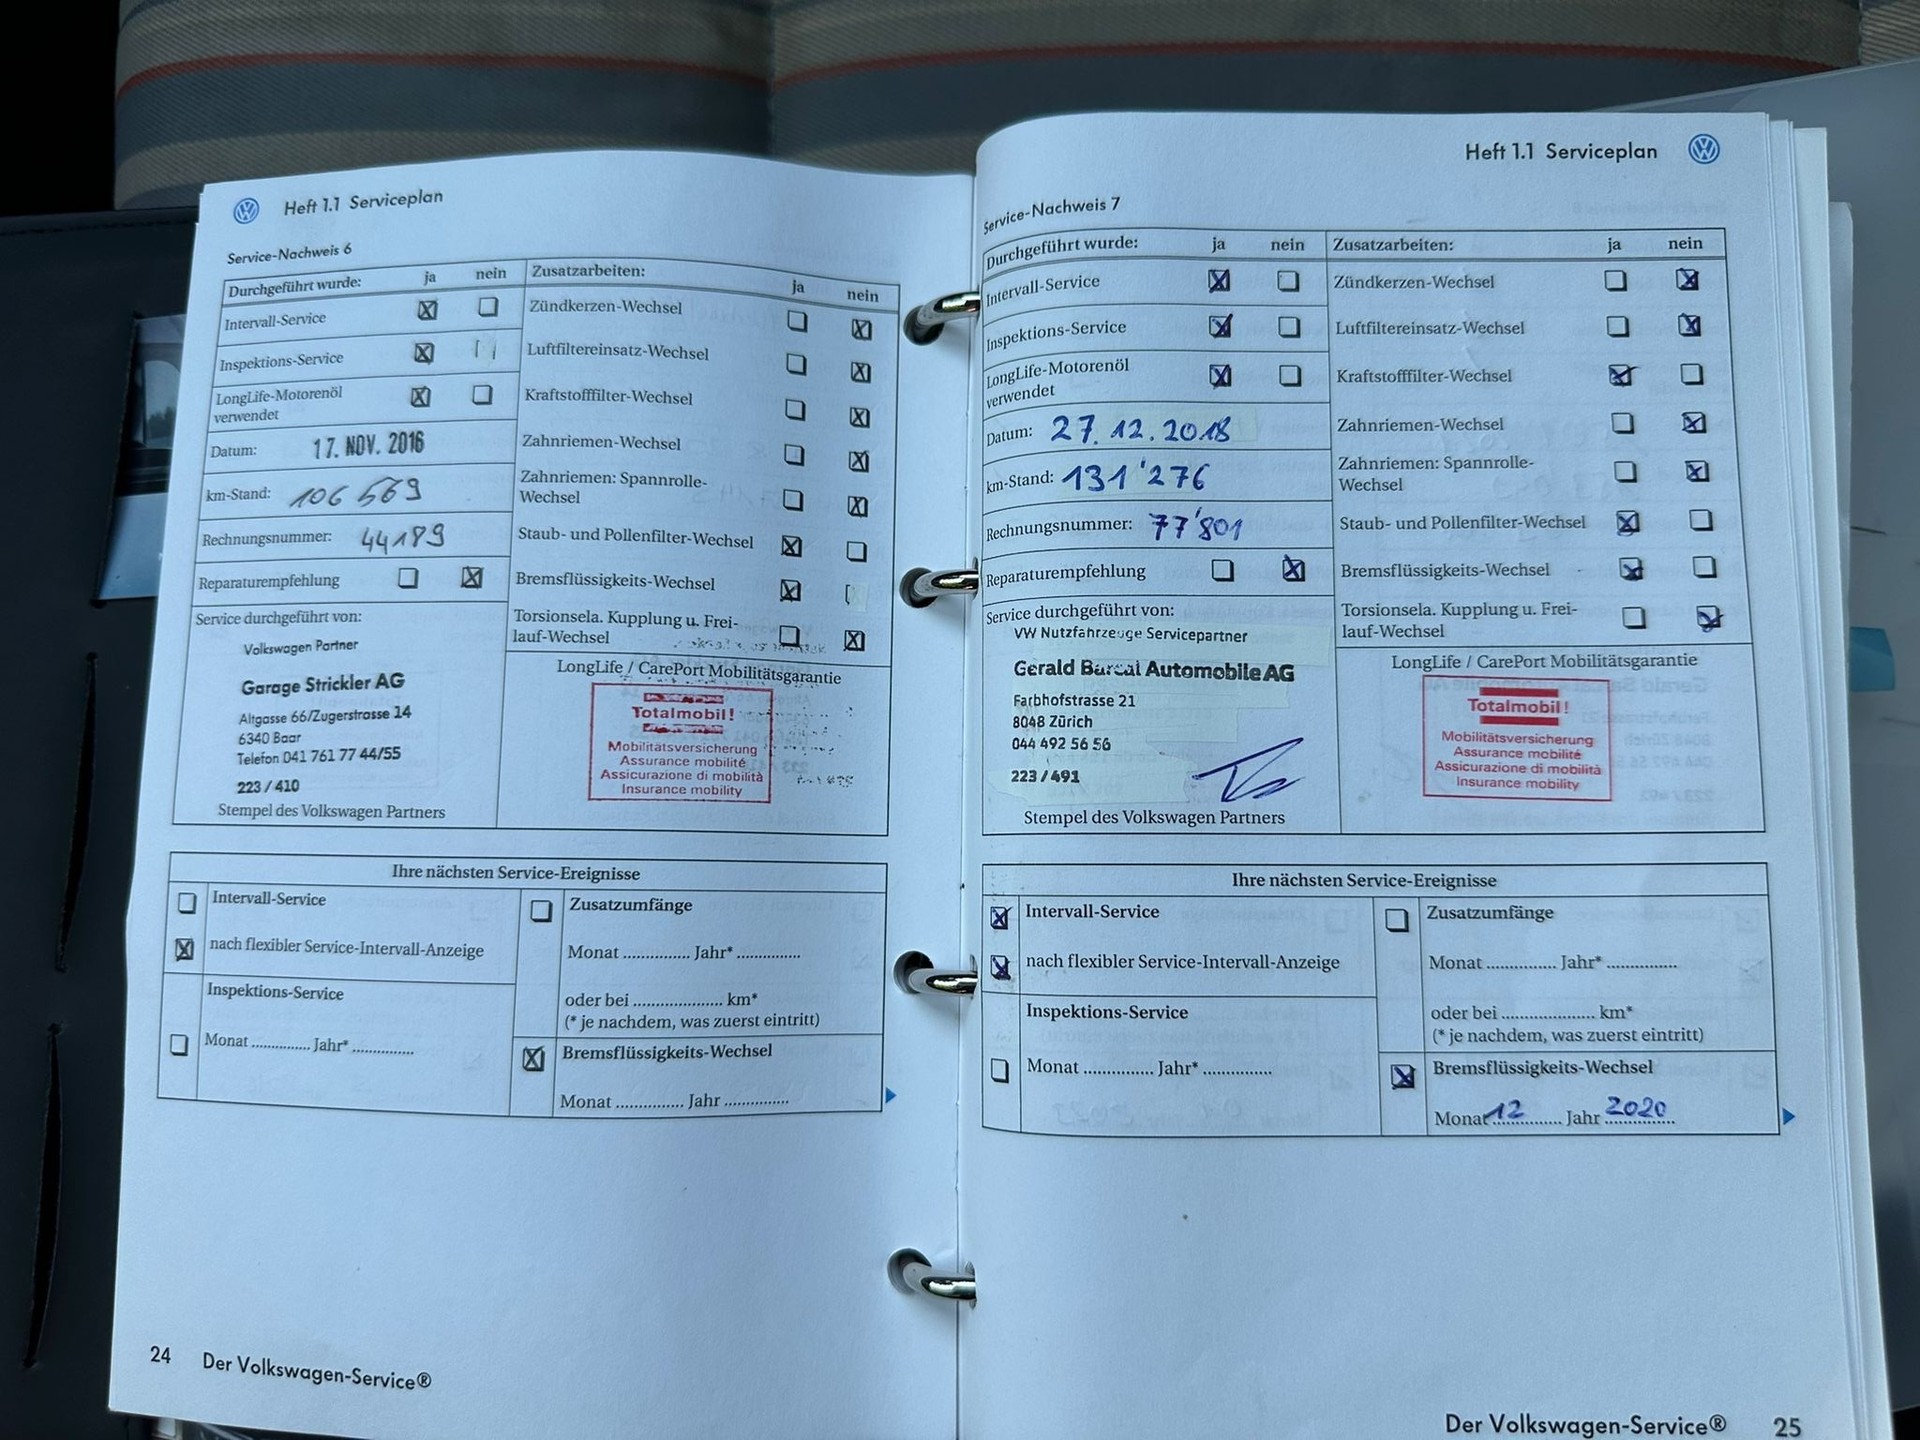 Heft 1.1 Serviceplan
Service-Nachweis 6
Durchgeführt wurde: ja nein
Intervall-Service
Inspektions-Service
LongLife-Motorenöl
verwendet
Datum: 17. NOV. 2016
km-Stand: 106 569
Rechnungsnummer: 44189
Reparaturempfehlung
Service durchgeführt von:
Volkswagen Partner
Garage Strickler AG
Altgasse 66/Zugerstrasse 14
6340 Baar
Telefon 041 761 77 44/55
223 / 410
Stempel des Volkswagen Partners
Zusatzarbeiten: ja nein
Zündkerzen-Wechsel
Luftfiltereinsatz-Wechsel
Kraftstofffilter-Wechsel
Zahnriemen-Wechsel
Zahnriemen: Spannrolle-
Wechsel
Staub- und Pollenfilter-Wechsel
Bremsflüssigkeits-Wechsel
Torsionsela. Kupplung u. Frei-
lauf-Wechsel
LongLife / CarePort Mobilitätsgarantie
Totalmobil!
Mobilitätsversicherung
Assurance mobilité
Assicurazione di mobilità
Insurance mobility
Ihre nächsten Service-Ereignisse
Intervall-Service
nach flexibler Service-Intervall-Anzeige
Inspektions-Service
Monat .............. Jahr* ..............
Zusatzumfänge
Monat ............... Jahr* ..............
oder bei .................... km*
(* je nachdem, was zuerst eintritt)
Bremsflüssigkeits-Wechsel
Monat ............... Jahr ..............
24 Der Volkswagen-Service®
Heft 1.1 Serviceplan
Service-Nachweis 7
Durchgeführt wurde: ja nein
Intervall-Service
Inspektions-Service
LongLife-Motorenöl
verwendet
Datum: 27.12.2018
km-Stand: 131'276
Rechnungsnummer: 77'801
Reparaturempfehlung
Service durchgeführt von:
VW Nutzfahrzeuge Servicepartner
Gerald Barcal Automobile AG
Farbhofstrasse 21
8048 Zürich
044 492 56 56
223 / 491
Stempel des Volkswagen Partners
Zusatzarbeiten: ja nein
Zündkerzen-Wechsel
Luftfiltereinsatz-Wechsel
Kraftstofffilter-Wechsel
Zahnriemen-Wechsel
Zahnriemen: Spannrolle-
Wechsel
Staub- und Pollenfilter-Wechsel
Bremsflüssigkeits-Wechsel
Torsionsela. Kupplung u. Frei-
lauf-Wechsel
LongLife / CarePort Mobilitätsgarantie
Totalmobil!
Mobilitätsversicherung
Assurance mobilité
Assicurazione di mobilità
Insurance mobility
Ihre nächsten Service-Ereignisse
Intervall-Service
nach flexibler Service-Intervall-Anzeige
Inspektions-Service
Monat ............... Jahr* ...............
Zusatzumfänge
Monat ............... Jahr* ...............
oder bei .................... km*
(* je nachdem, was zuerst eintritt)
Bremsflüssigkeits-Wechsel
Monat 12 Jahr 2020
Der Volkswagen-Service® 25